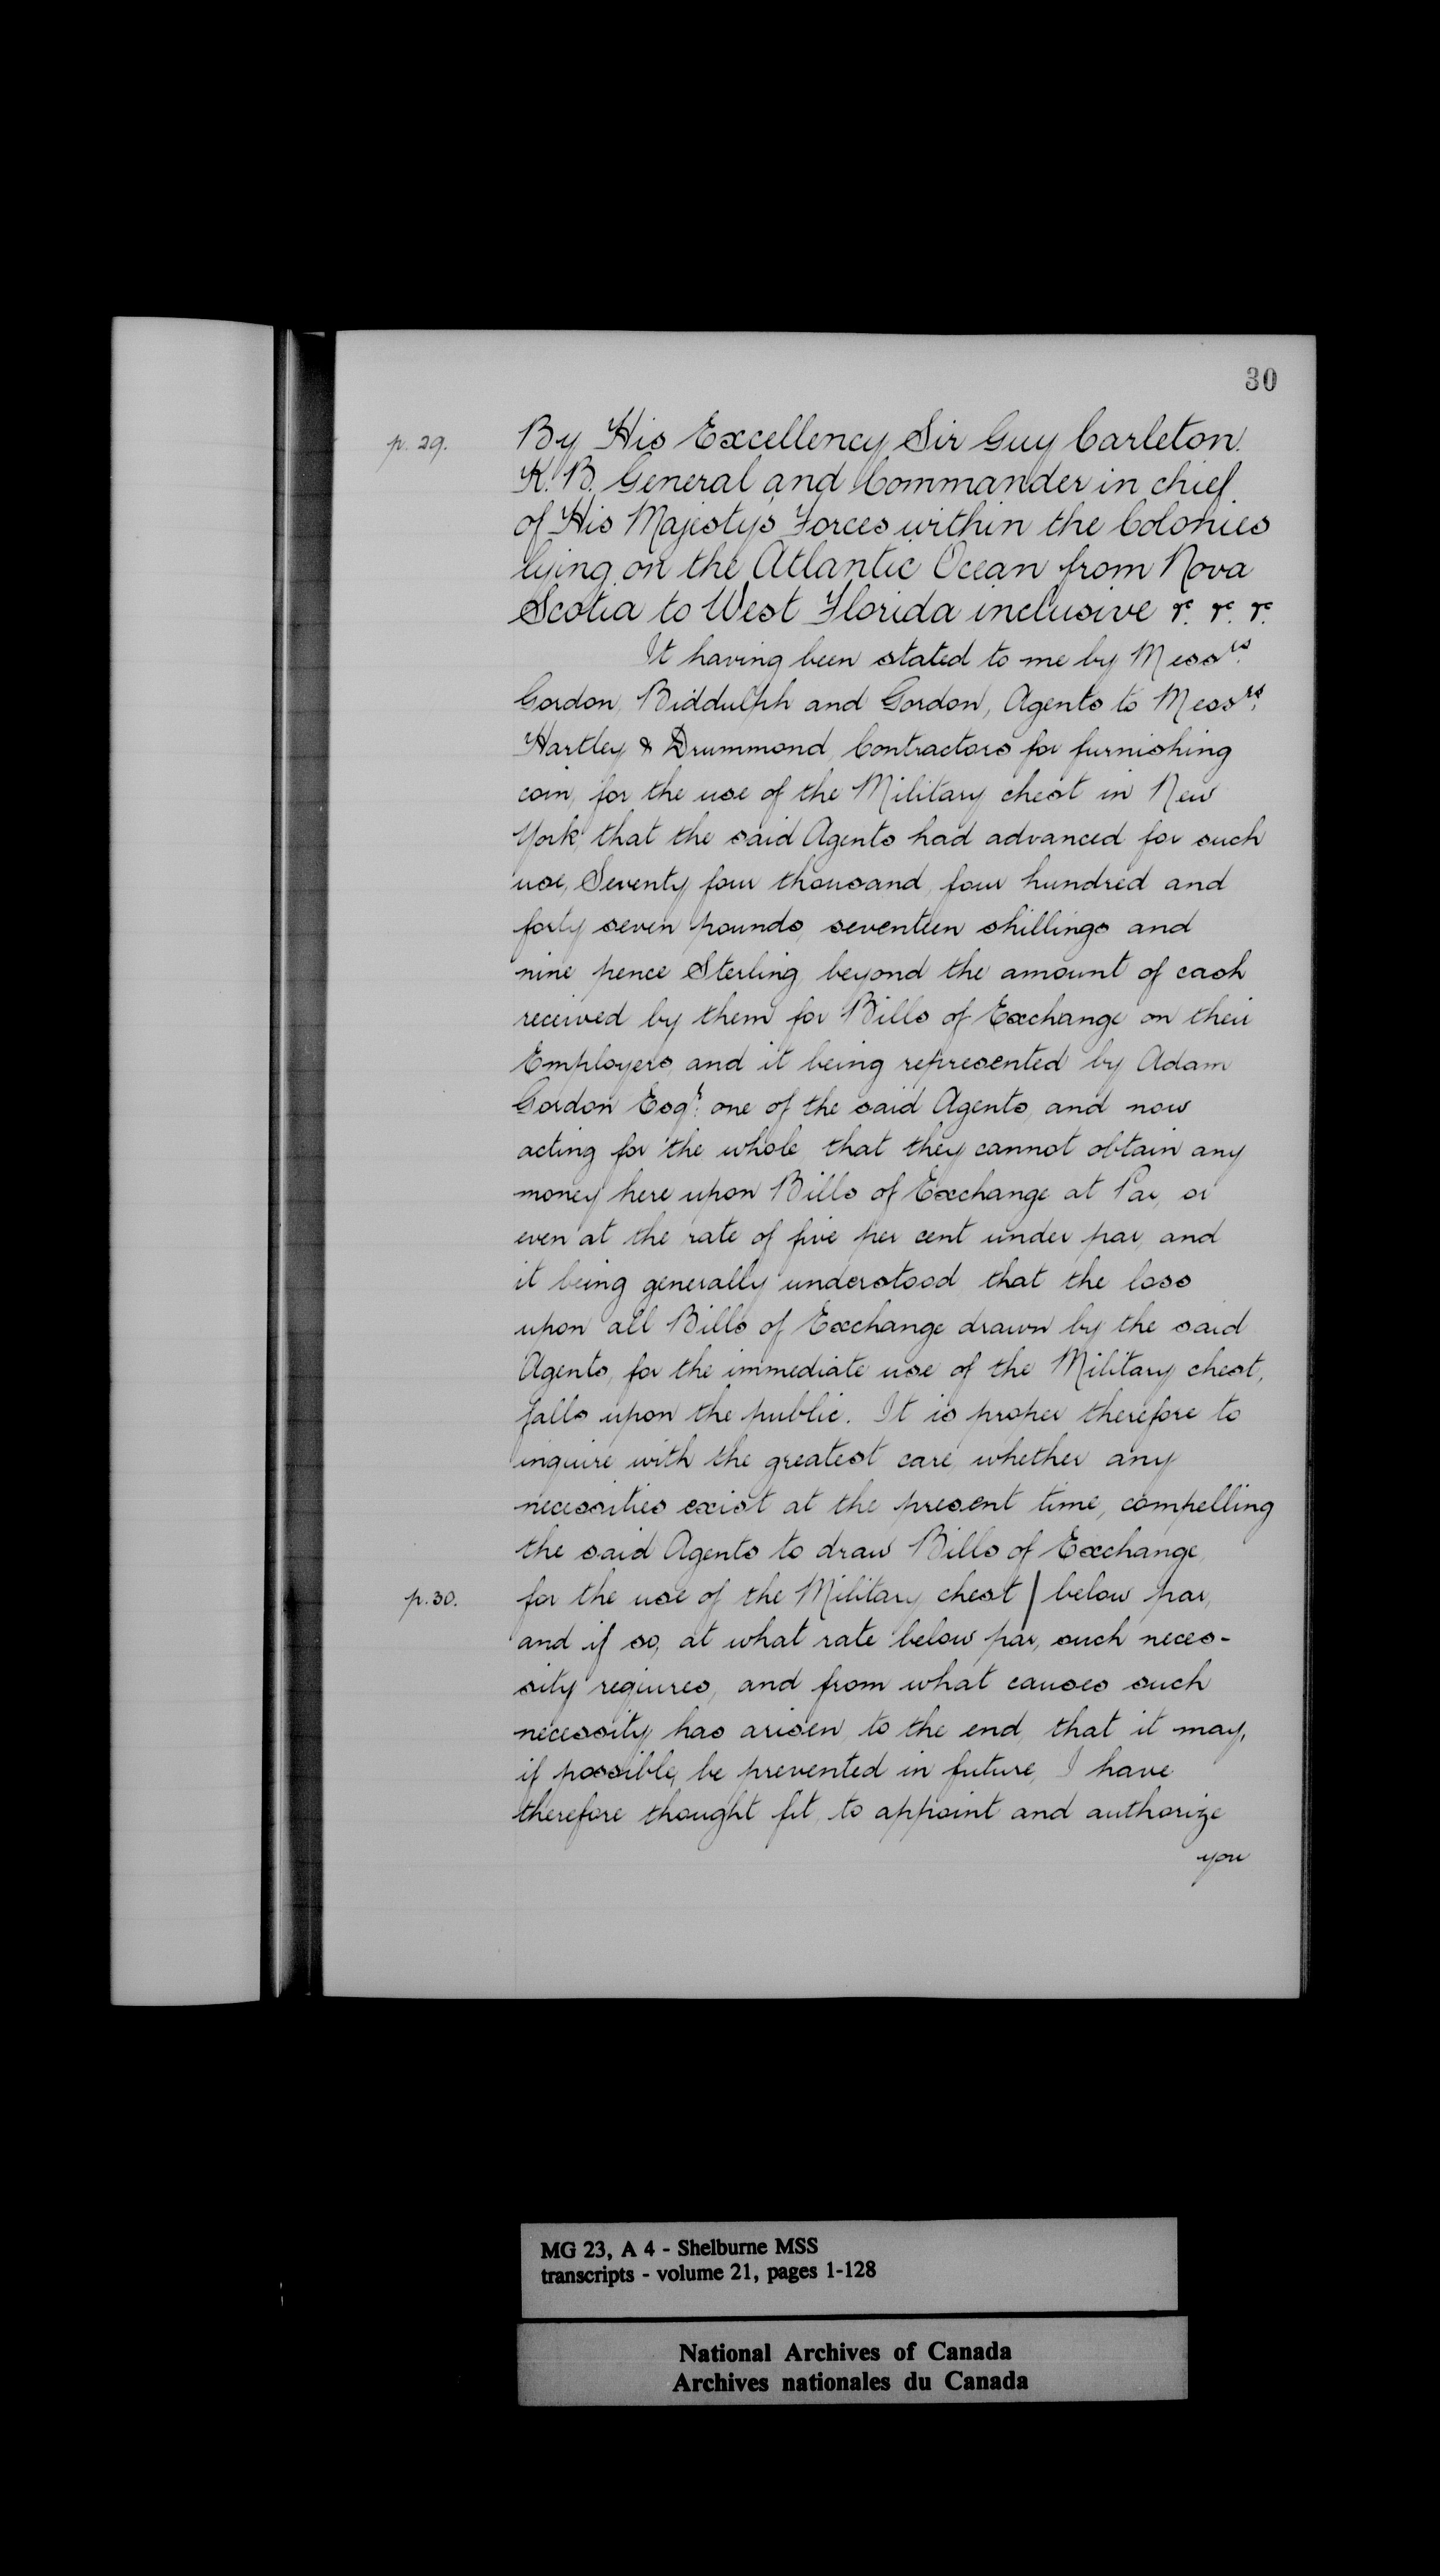 30
p. 29.
By His Excellency Sir Guy Carleton.
K. B. General and Commander in chief
of His Majesty's Forces within the Colonies
lying on the Atlantic Ocean from Nova
Scotia to West Florida inclusive &c. &c. &c.
It having been stated to me by Messrs.
Gordon, Biddulph and Gordon, Agents to Messrs.
Hartley & Drummond, Contractors for furnishing
coin, for the use of the Military chest in New
York, that the said Agents had advanced for such
use, Seventy four thousand, four hundred and
forty seven pounds, seventeen shillings and
nine pence Sterling, beyond the amount of cash
received by them for Bills of Exchange on their
Employers, and it being represented by Adam
Gordon Esqr. one of the said Agents, and now
acting for the whole, that they cannot obtain any
money here upon Bills of Exchange at Par, or
even at the rate of five per cent under par, and
it being generally understood, that the loss
upon all Bills of Exchange drawn by the said
Agents, for the immediate use of the Military chest,
falls upon the public. It is proper therefore to
inquire with the greatest care, whether any
necessities exist at the present time, compelling
the said Agents to draw Bills of Exchange,
p. 30.
for the use of the Military chest | below par,
and if so, at what rate below par, such neces-
sity requires, and from what causes such
necessity has arisen, to the end, that it may,
if possible, be prevented in future, I have
therefore thought fit, to appoint and authorize
you
MG 23, A 4 - Shelburne MSS
transcripts - volume 21, pages 1-128
National Archives of Canada
Archives nationales du Canada